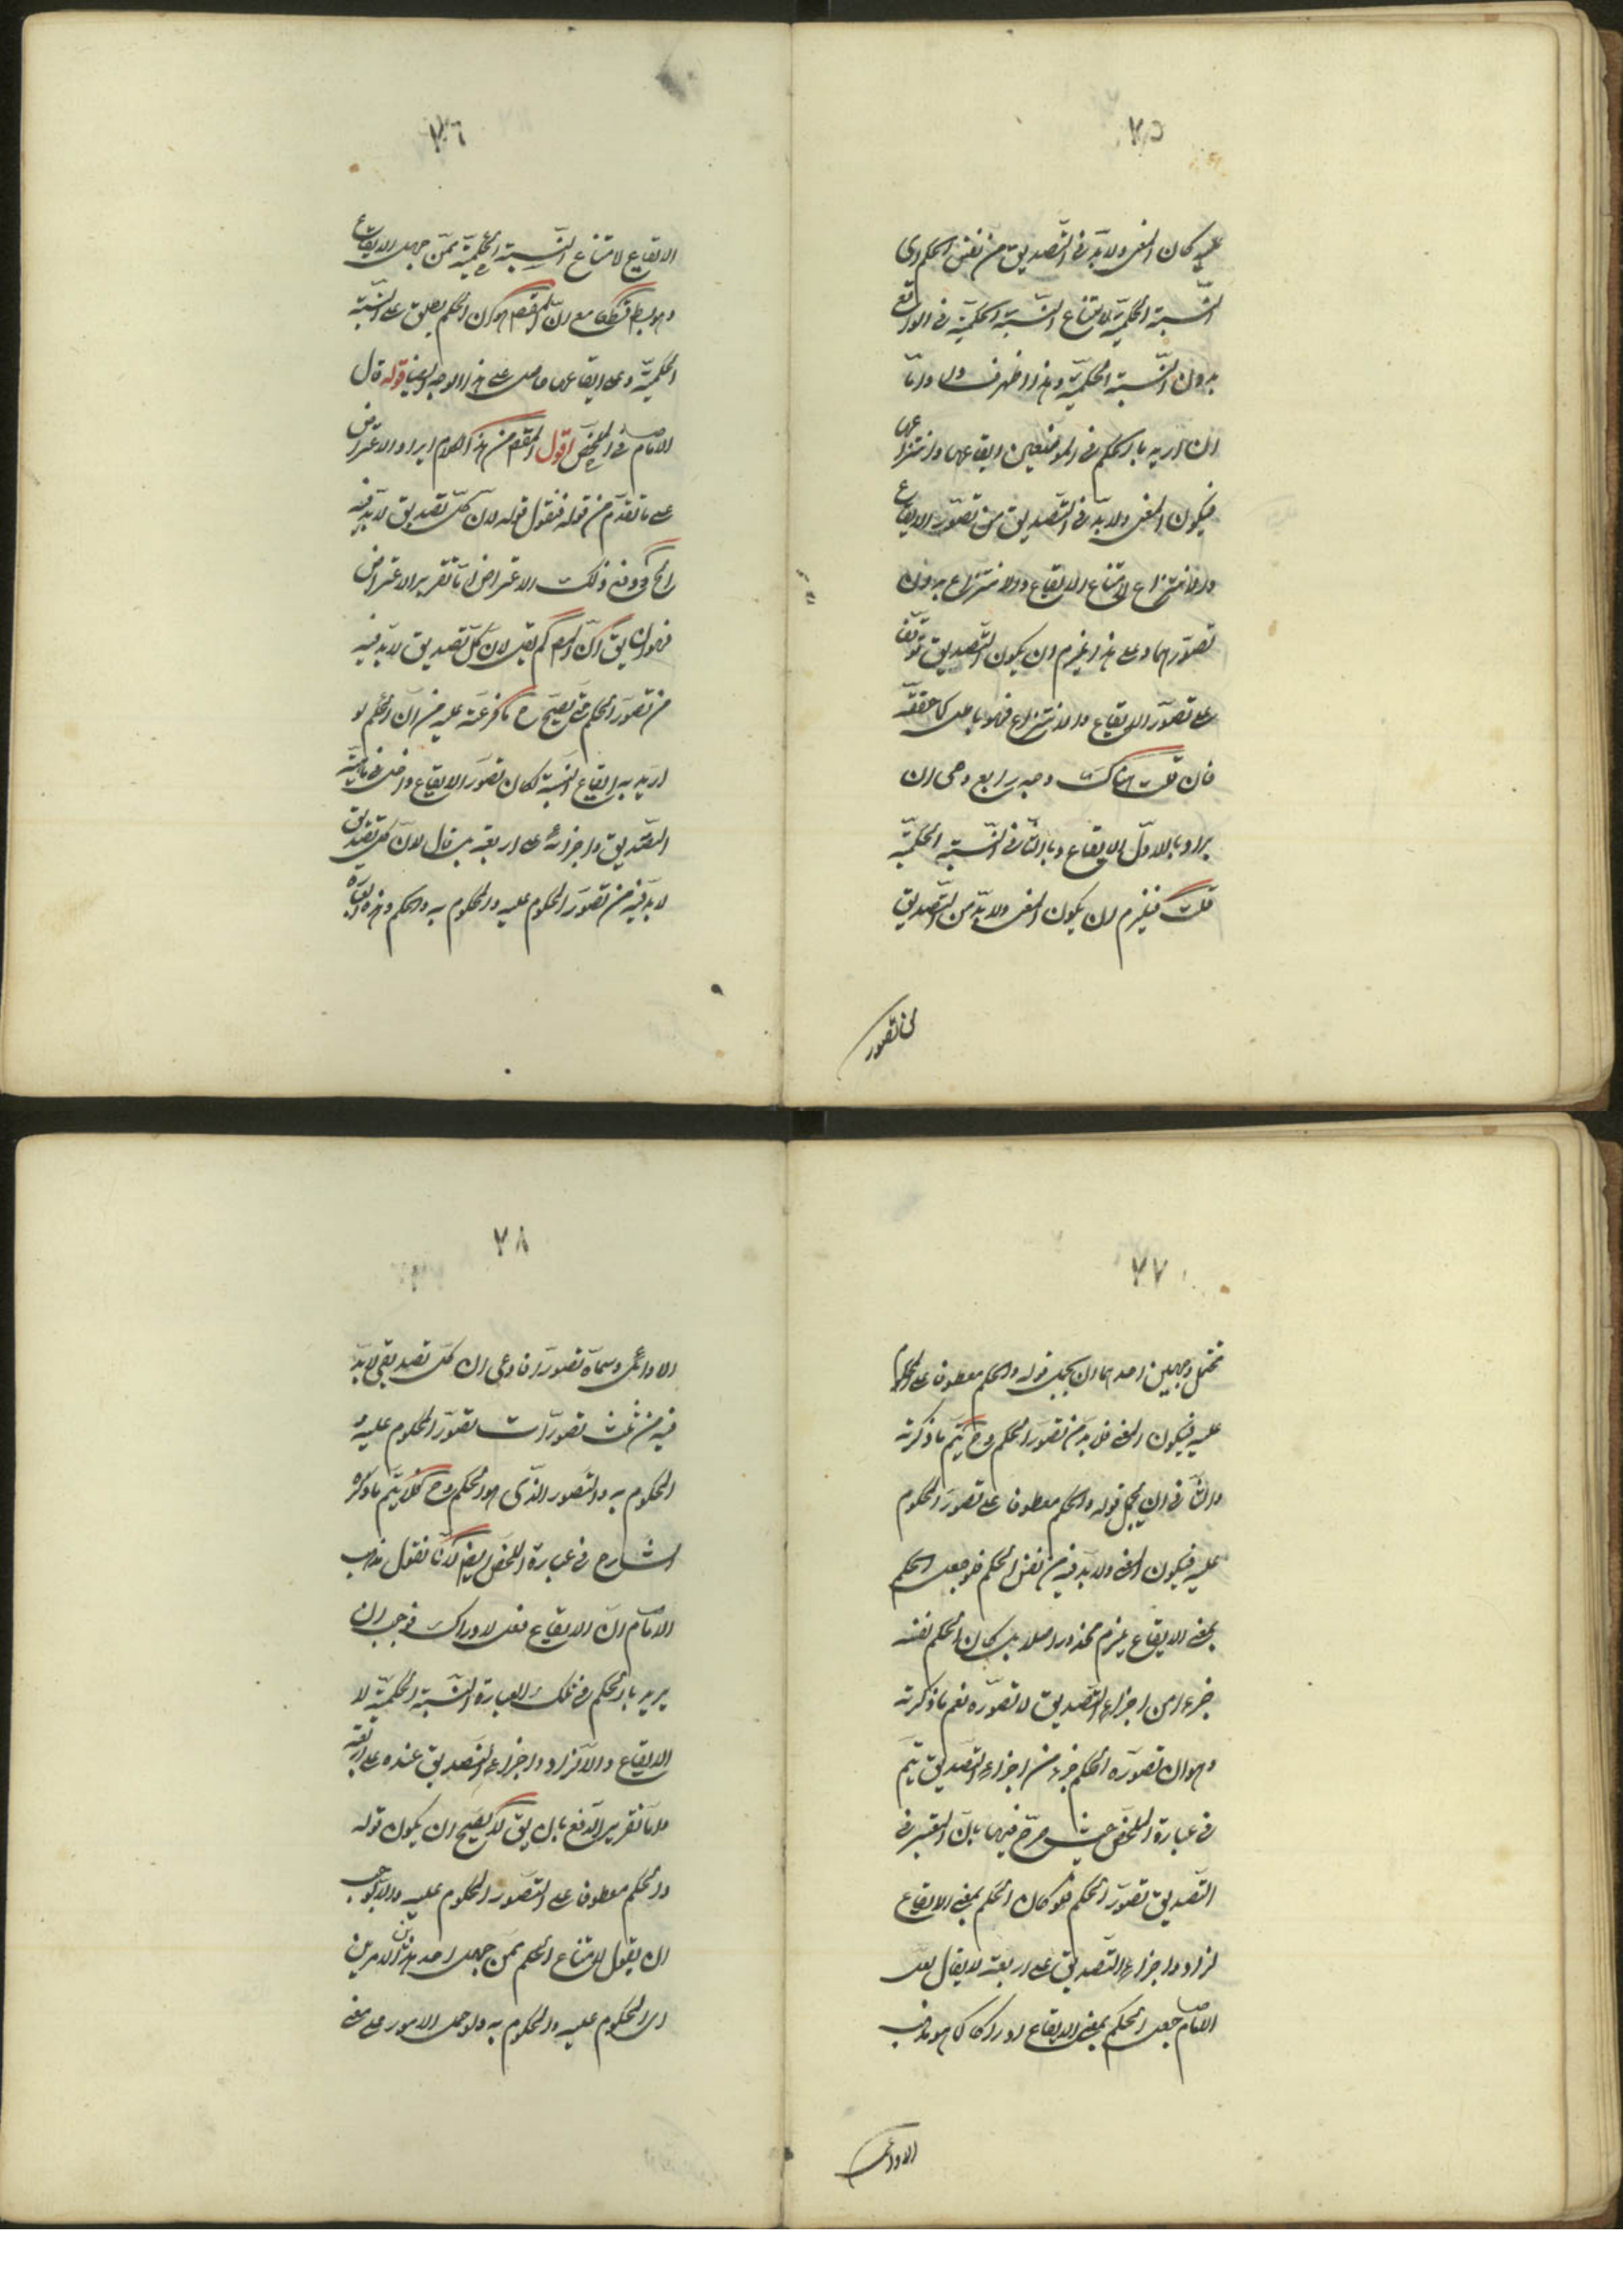 ٢٥
عليه لكان المعنى ولا بدّ فى التّصديق من نفس الحكم اى
النّسبة الحكميّة لامتناع النّسبة الحكميّة فى الواقع
بدون النّسبة الحكميّة وهذا اظهر فسادا وامّا
ان اريد بالحكم فى الموضعين ايقاعها وانتزاعها
فيكون المعنى ولا بدّ فى التّصديق من تصوّر الايقاع
والانتزاع لامتناع الايقاع والانتزاع بدون
تصوّرهما وعلى هذا يلزم ان يكون التّصديق توقّف
على تصوّر الايقاع والانتزاع فهو باطل كما حققه
فان قلت هناك وجه رابع وهى ان
يراد بالاوّل الايقاع وبالثّانى النّسبة الحكميّة
قلت فيلزم ان يكون المعنى ولا بدّ من التّصديق
من تصور
٢٦
الايقاع لامتناع النّسبة الحكميّة ممّن جهل الايقاع
وهو باطل قطعا مع انّ المقصود هو ان الحكم يطلق على النّسبة
الحكميّة وعلى ايقاعها حاصل على هذا الوجه ايضا قوله قال
الامام فى الملخّص اقول المقصود من هذا الكلام ايراد الاعتراض
على ما تقدّم من قوله فنقول قوله لانّ كلّ تصديق لا بدّ فيه
الخ ودفع ذلك الاعتراض امّا تقرير الاعتراض
فهو ان يقال انّ المص لم يقل لانّ كلّ تصديق لا بدّ فيه
من تصوّر الحكم حتى يصحّ ح ما فرّعته عليه من انّ الحكم لو
اريد به ايقاع النّسبة لكان تصوّر الايقاع داخل فى ماهيّة
التّصديق واجزائه على اربعة بل قال لانّ كلّ تصديق
لا بدّ فيه من تصوّر المحكوم عليه والمحكوم به والحكم وهذه العبارة
٢٧
تحتمل وجهين احدهما ان يجعل قوله والحكم معطوفا على المحكوم
عليه فيكون المعنى فلا بدّ من تصوّر الحكم وح يتمّ ما ذكرته
والثّانى ان يجعل قوله والحكم معطوفا على تصوّر المحكوم
عليه فيكون المعنى ولا بدّ فيه من نفس الحكم فلو جعل الحكم
بمعنى الايقاع لم يلزم محذور اصلا بل كان الحكم نفسه
جزءا من اجزاء التّصديق لا تصوّره نعم ما ذكرته
وهو ان تصوّره الحكم جزء من اجزاء التّصديق يتمّ
فى عبارة الملخّص حيث صرّح فيها بانّ المعتبر فى
التّصديق تصوّر الحكم فلو كان الحكم بمعنى الايقاع
لزاد اجزاء التّصديق على اربعة لا يقال لعلّ
الامام جعل الحكم بمعنى الايقاع ادراكا كما هو مذهب
الاوائل
٢٨
الاوائل وسمّاه تصوّرا فادعى ان كلّ تصديق لا بدّ
فيه من ثلث تصوّرات تصوّر المحكوم عليه و
المحكوم به والتّصور الّذى هو الحكم وح فلا يتمّ ما ذكره
الشارح فى عبارة الملخّص ايضا لانّا نقول مذهب
الامام انّ الايقاع فعل لا ادراك فوجب ان
يريد بالحكم فى تلك العبارة النّسبة الحكميّة لا
الايقاع والّا لزاد اجزاء التّصديق عنده على اربعة
وامّا تقرير الدّفع بان يقال لا يصحّ ان يكون قوله
والحكم معطوفا على التّصور المحكوم عليه والّا لوجب
ان يقول لامتناع الحكم ممّن جهل احد هذين الامرين
اى المحكوم عليه والمحكوم به ولو حمل الامور على معنى